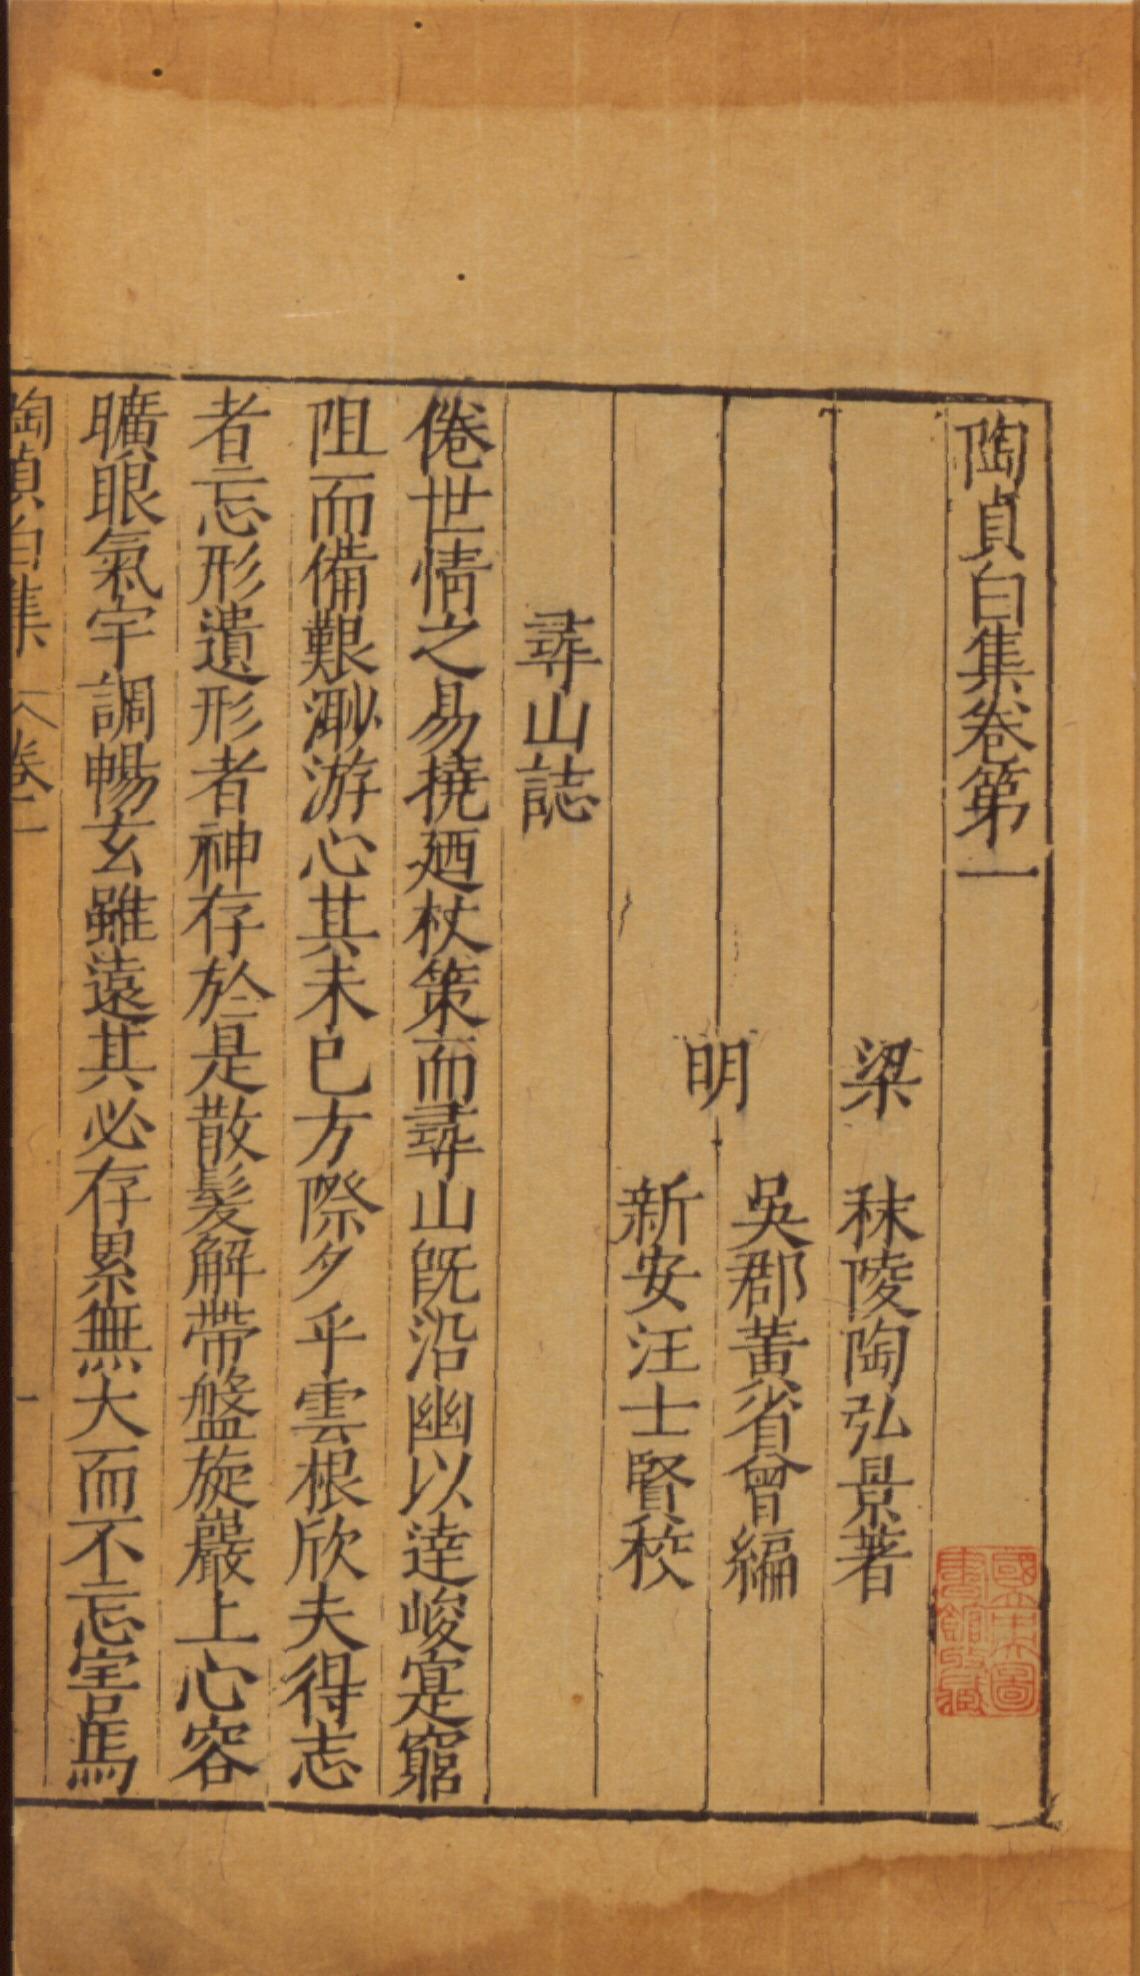 陶貞白集卷第一
梁　秣陵陶弘景著
明　吳郡黃省曾編
新安汪士賢校
尋山誌
倦世情之易撓廼杖策而尋山旣沿幽以達峻寔窮
阻而備艱渺游心其未已方際夕乎雲根欣夫得志
者忘形遺形者神存於是散髮解帶盤旋巖上心容
曠眼氣宇調暢玄雖遠其必存累無大而不忘害馬
陶貞白集　卷一　一
國立中央圖書館收藏